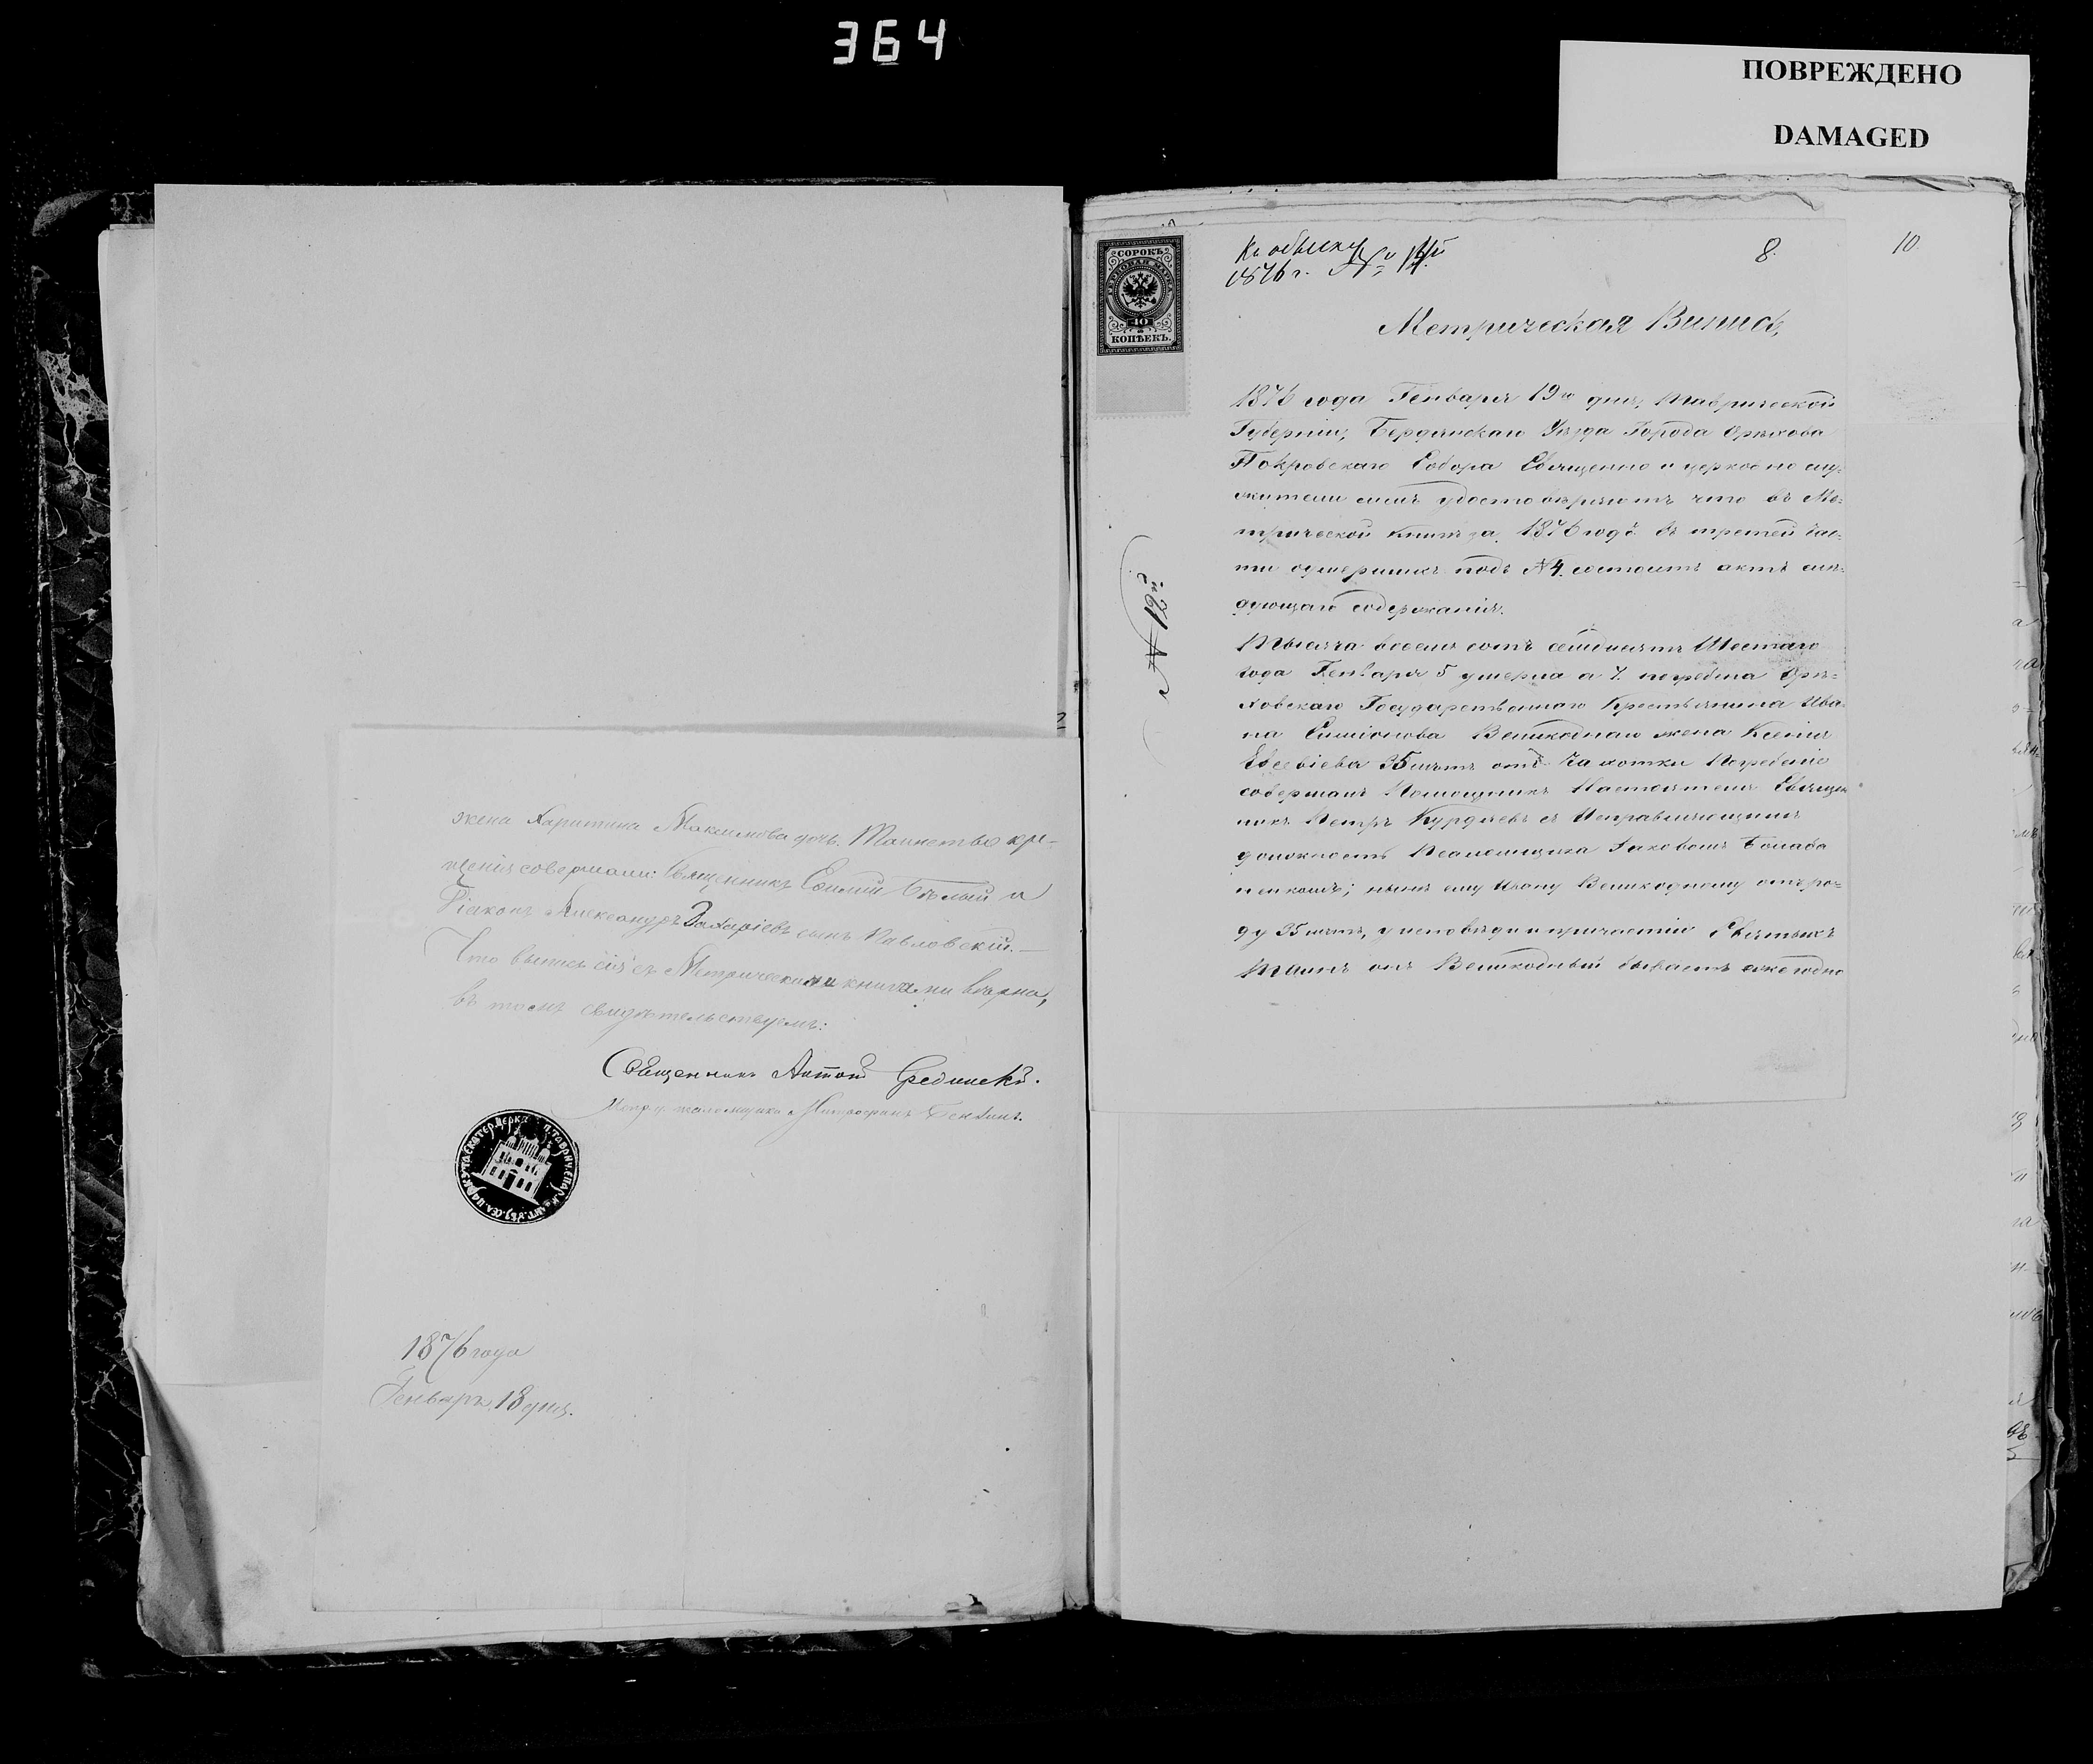 364
ПОВРЕЖДЕНО
DAMAGED
жена Харитина Максимова дочь. Таинство кре-
щенія совершали: Священникъ Бѣлый и
Діаконъ Александръ Захаріевъ сынъ Павловскій.—
Что выпись сія съ Метрическими книгами вѣрна,
въ томъ свидѣтельствуемъ:
Священникъ Антоній
Митрофанъ
1876 года
Генваря 18 дня.
СОРОКЪ
ГЕРБОВАЯ МАРКА
40
КОПѢЕКЪ.
Къ обыску
1876 г. №
8.
10.
Метрическая Випись,
1876 года Генваря 19го дня, Таврической
Губерніи, Бердянскаго Уѣзда Города Орѣхова
Покровскаго Собора Священно и церковно слу-
жители симъ удостовѣряютъ что въ Ме-
трической книгѣ за 1876 годъ въ третей час-
ти умершихъ подъ №4. состоитъ актъ слѣ-
дующаго содержанія.
Тысяча восемь сотъ семдисятъ Шестаго
года Генваря 5 умерла а 7. погребена Орѣ-
ховскаго Государственнаго Крестьянина Ива-
на Симіонова Великоднаго жена Ксенія
Евсевіева 35 лѣтъ отъ Чахотки Погребеніе
совершалъ Помощникъ Настоятеля Священ
никъ Петръ Курдяевъ съ Исправляющимъ
должность Псаломщика Іаковомъ
ныне ему Ивану Великодному отъ ро-
ду 35 лѣтъ, у исповѣди и причастіи Святыхъ
Таинъ онъ Великодный бываетъ ежегодно